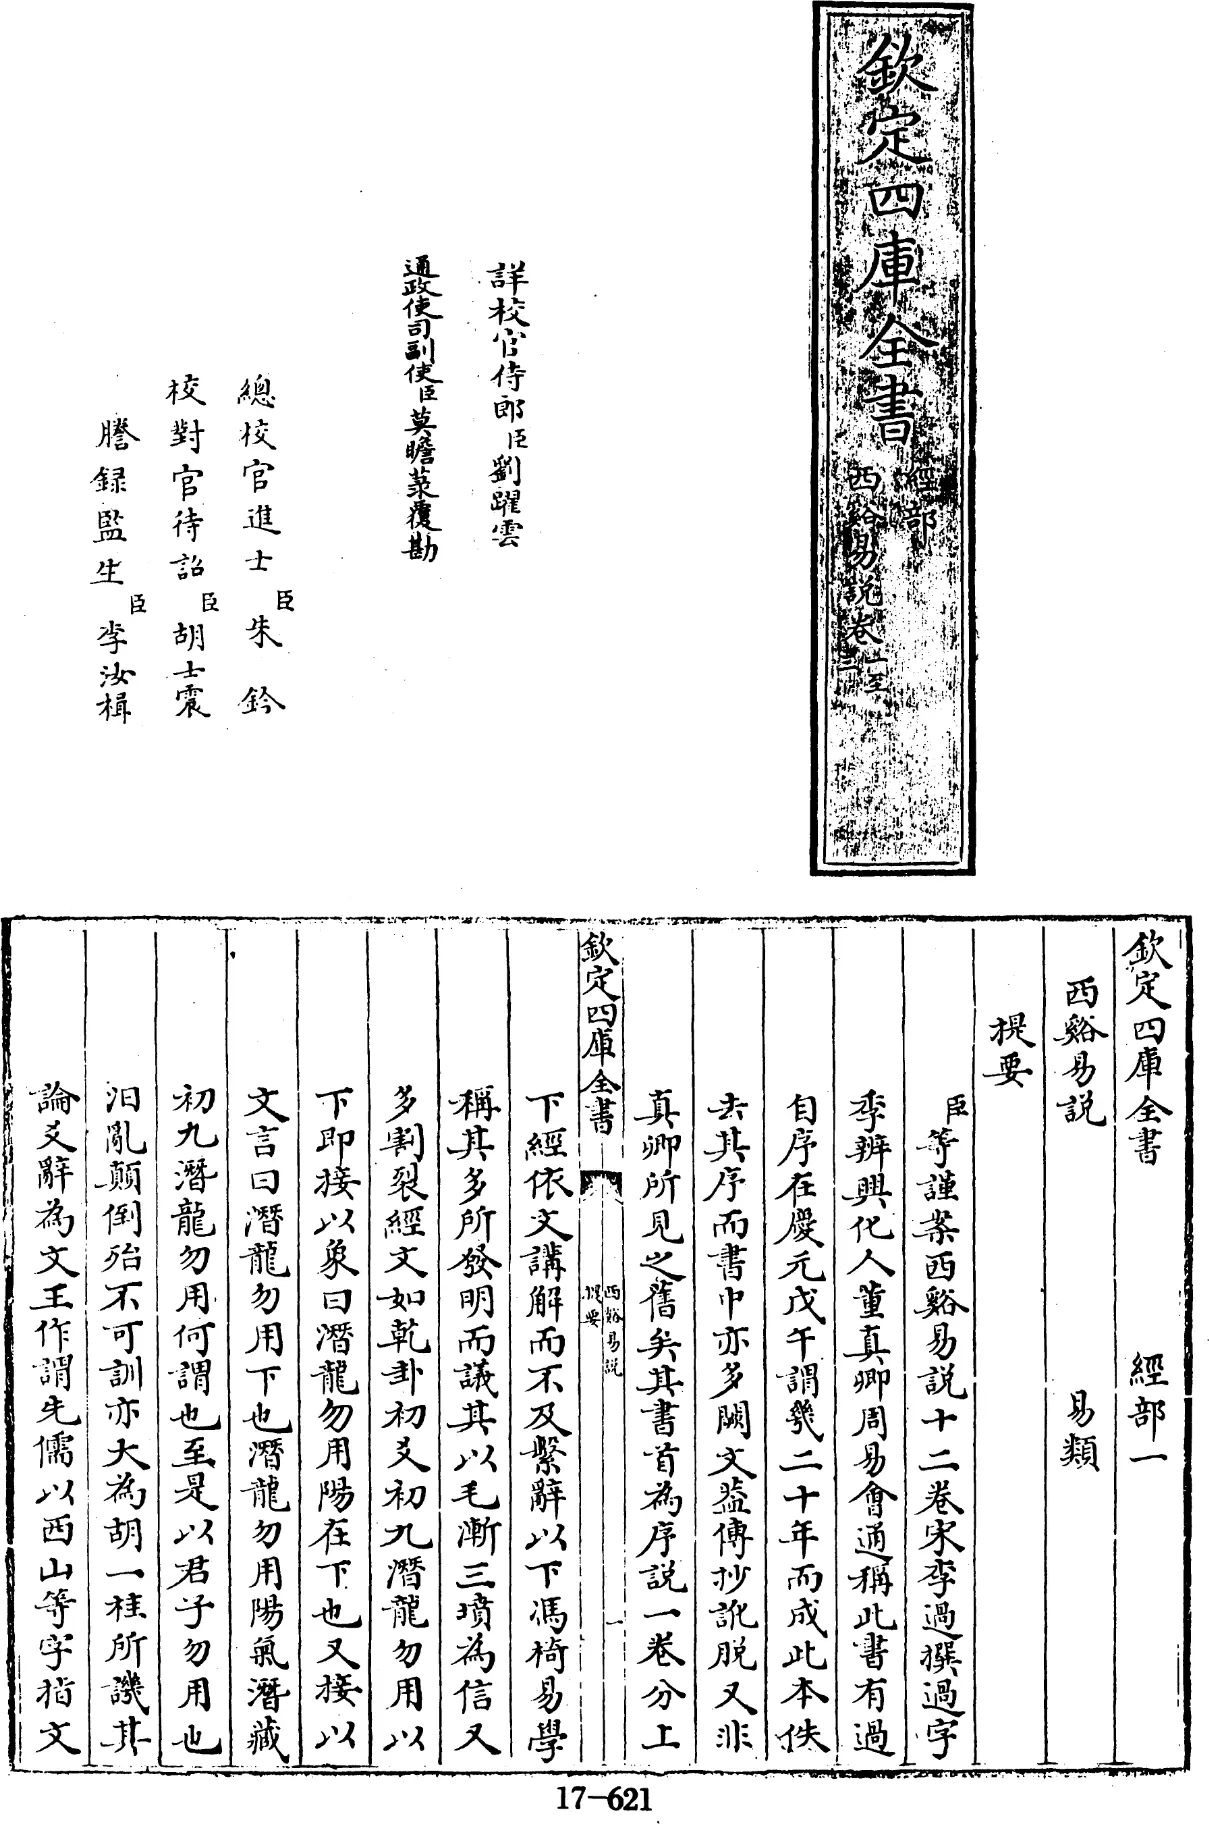 欽定四庫全書
經部
西谿易説卷一至
三
詳校官侍郎臣劉躍雲
通政使司副使臣莫瞻菉覆勘
總校官進士臣朱鈐
校對官待詔臣胡士震
謄録監生臣李汝楫
欽定四庫全書 經部一
西谿易説 易類
提要
臣等謹案西谿易説十二卷宋李過撰過字
季辨興化人董真卿周易會通稱此書有過
自序在慶元戊午謂幾二十年而成此本佚
去其序而書中亦多闕文葢傳抄訛脱又非
真卿所見之舊矣其書首為序説一卷分上
欽定四庫全書
西谿易説
提要
一
下經依文講解而不及繫辭以下馮椅易學
稱其多所發明而議其以毛漸三墳為信又
多割裂經文如乾卦初爻初九潛龍勿用以
下即接以象曰潛龍勿用陽在下也又接以
文言曰潛龍勿用下也潛龍勿用陽氣潛藏
初九潛龍勿用何謂也至是以君子勿用也
汨亂顛倒殆不可訓亦大為胡一桂所譏其
論爻辭為文王作謂先儒以西山等字指文
17-621